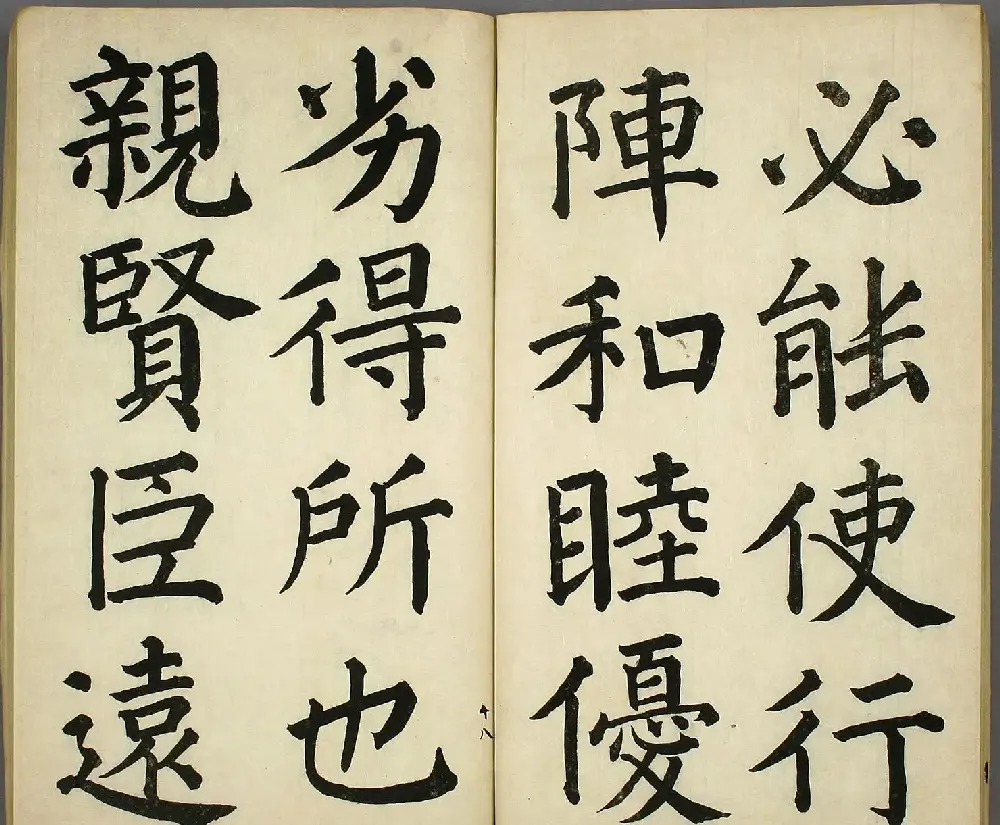 必能使行
陣和睦優
十八
劣得所也
親賢臣遠